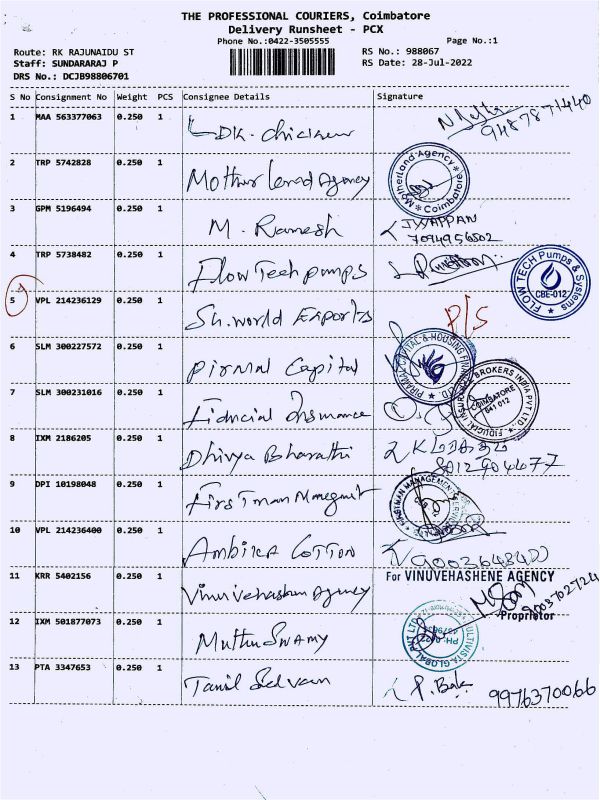 THE PROFESSIONAL COURIERS, Coimbatore
Delivery Runsheet - PCX
Phone No.:0422-3505555 Page No.:1
Route: RK RAJUNAIDU ST RS No.: 988067
Staff: SUNDARARAJ P RS Date: 28-Jul-2022
DRS No.: DCJB98806701
S No Consignment No Weight PCS Consignee Details Signature
1 MAA 563377063 0.250 1 9487871440
2 TRP 5742828 0.250 1 Mother land Agency Motherland Agency Coimbatore
3 GPM 5196494 0.250 1 M. Ramesh
7094956802
4 TRP 5738482 0.250 1 Flow Tech pumps FLOW TECH Pumps & Systems CBE-012
5 VPL 214236129 0.250 1 Sh.world Exports P/S
6 SLM 300227572 0.250 1 Pirmal Capital PIRAMAL CAPITAL & HOUSING FINANCE LTD.
7 SLM 300231016 0.250 1 Insurance FIDUCIAL INSURANCE BROKERS INDIA PVT LTD., COIMBATORE 641 012
8 IXM 2186205 0.250 1 Dhivya Bharathi
9 DPI 10198048 0.250 1 First man
10 VPL 214236400 0.250 1 AMBIKA COTTON
11 KRR 5402156 0.250 1 Agency For VINUVEHASHENE AGENCY
Proprietor
12 IXM 501877073 0.250 1 Muthu Swamy ULTIVISTA GLOBAL PVT LTD
13 PTA 3347653 0.250 1 Tamil Selvam 9976370066